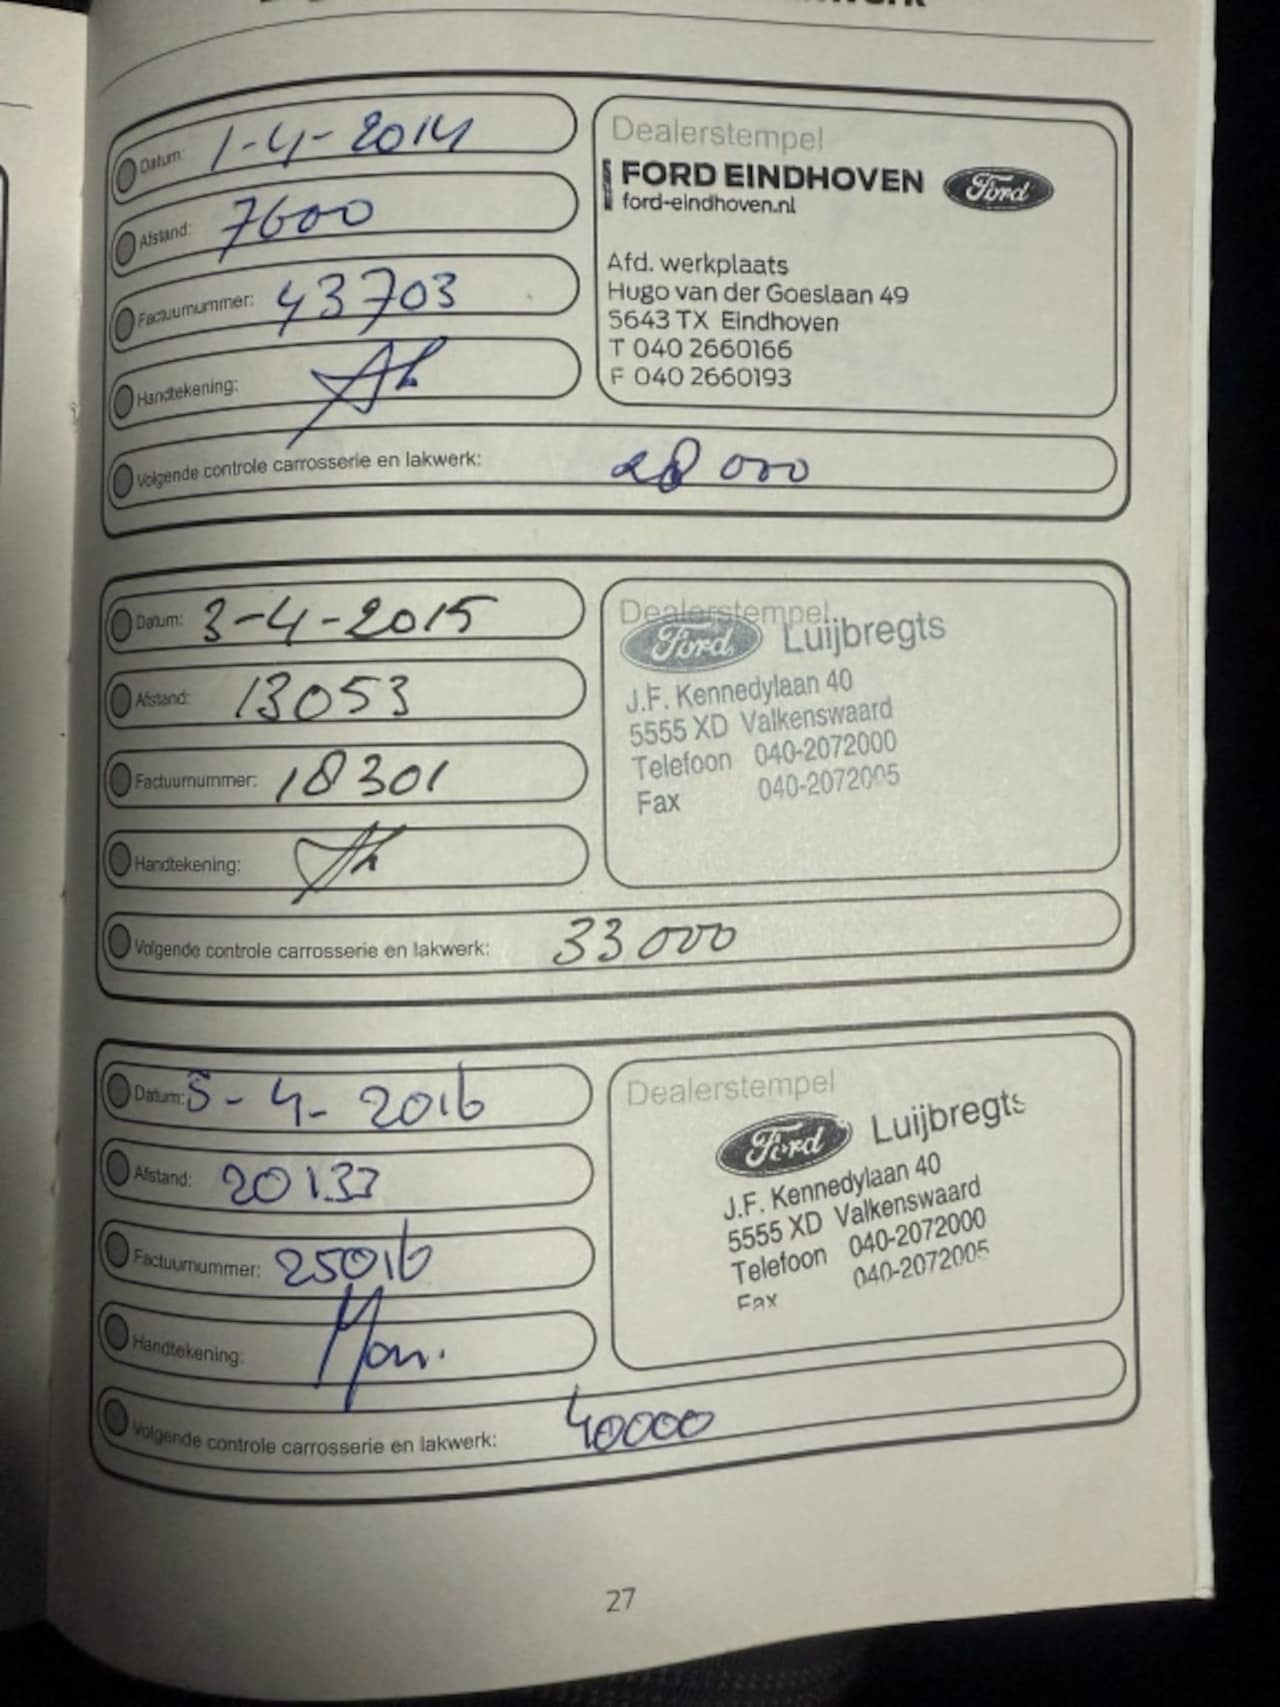 Datum: 1-4-2014
Afstand: 7600
Factuurnummer: 43703
Handtekening:
Volgende controle carrosserie en lakwerk: 28 000
Dealerstempel
FORD EINDHOVEN Ford
ford-eindhoven.nl
Afd. werkplaats
Hugo van der Goeslaan 49
5643 TX Eindhoven
T 040 2660166
F 040 2660193
Datum: 3-4-2015
Afstand: 13053
Factuurnummer: 18301
Handtekening:
Volgende controle carrosserie en lakwerk: 33 000
Dealerstempel
Ford Luijbregts
J.F. Kennedylaan 40
5555 XD Valkenswaard
Telefoon 040-2072000
Fax 040-2072005
Datum: 5-4-2016
Afstand: 20133
Factuurnummer: 25016
Handtekening:
Volgende controle carrosserie en lakwerk: 40000
Dealerstempel
Ford Luijbregts
J.F. Kennedylaan 40
5555 XD Valkenswaard
Telefoon 040-2072000
Fax 040-2072005
27